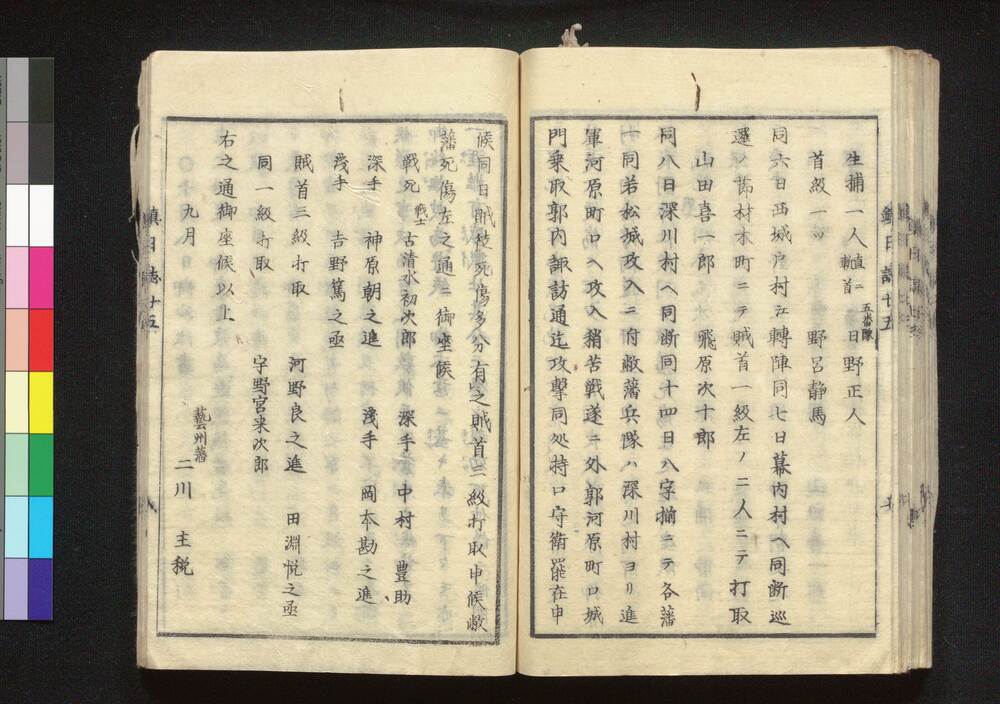 生捕一人直ニ斬首 五番隊 日野正人
首級一ツ 野呂静馬
同六日西城戸村江轉陣同七日幕内村ヘ同断巡
邏ノ節材木町ニテ賊首一級左ノ二人ニテ打取
山田喜一郎 飛原次十郎
同八日深川村ヘ同断同十四日八字揃ニテ各藩
一同若松城攻入ニ付敝藩兵隊ハ深川村ヨリ進
軍河原町口ヘ攻入稍苦戦遂ニ外郭河原町口城
門乗取郭内諏訪通迄攻撃同処持口守衛罷在申
候同日賊徒死傷多分有之賊首三級打取申候敝
藩死傷左之通ニ御座候
戦死 戦士 古清水初次郎 深手 中村豊助
深手 神原朝之進 浅手 岡本勘之進
浅手 吉野篤之丞
賊首三級打取 河野良之進 田淵悦之丞
同一級打取 宇野宮来次郎
右之通御座候以上
九月 藝州藩 二川主税
鎮日誌十五